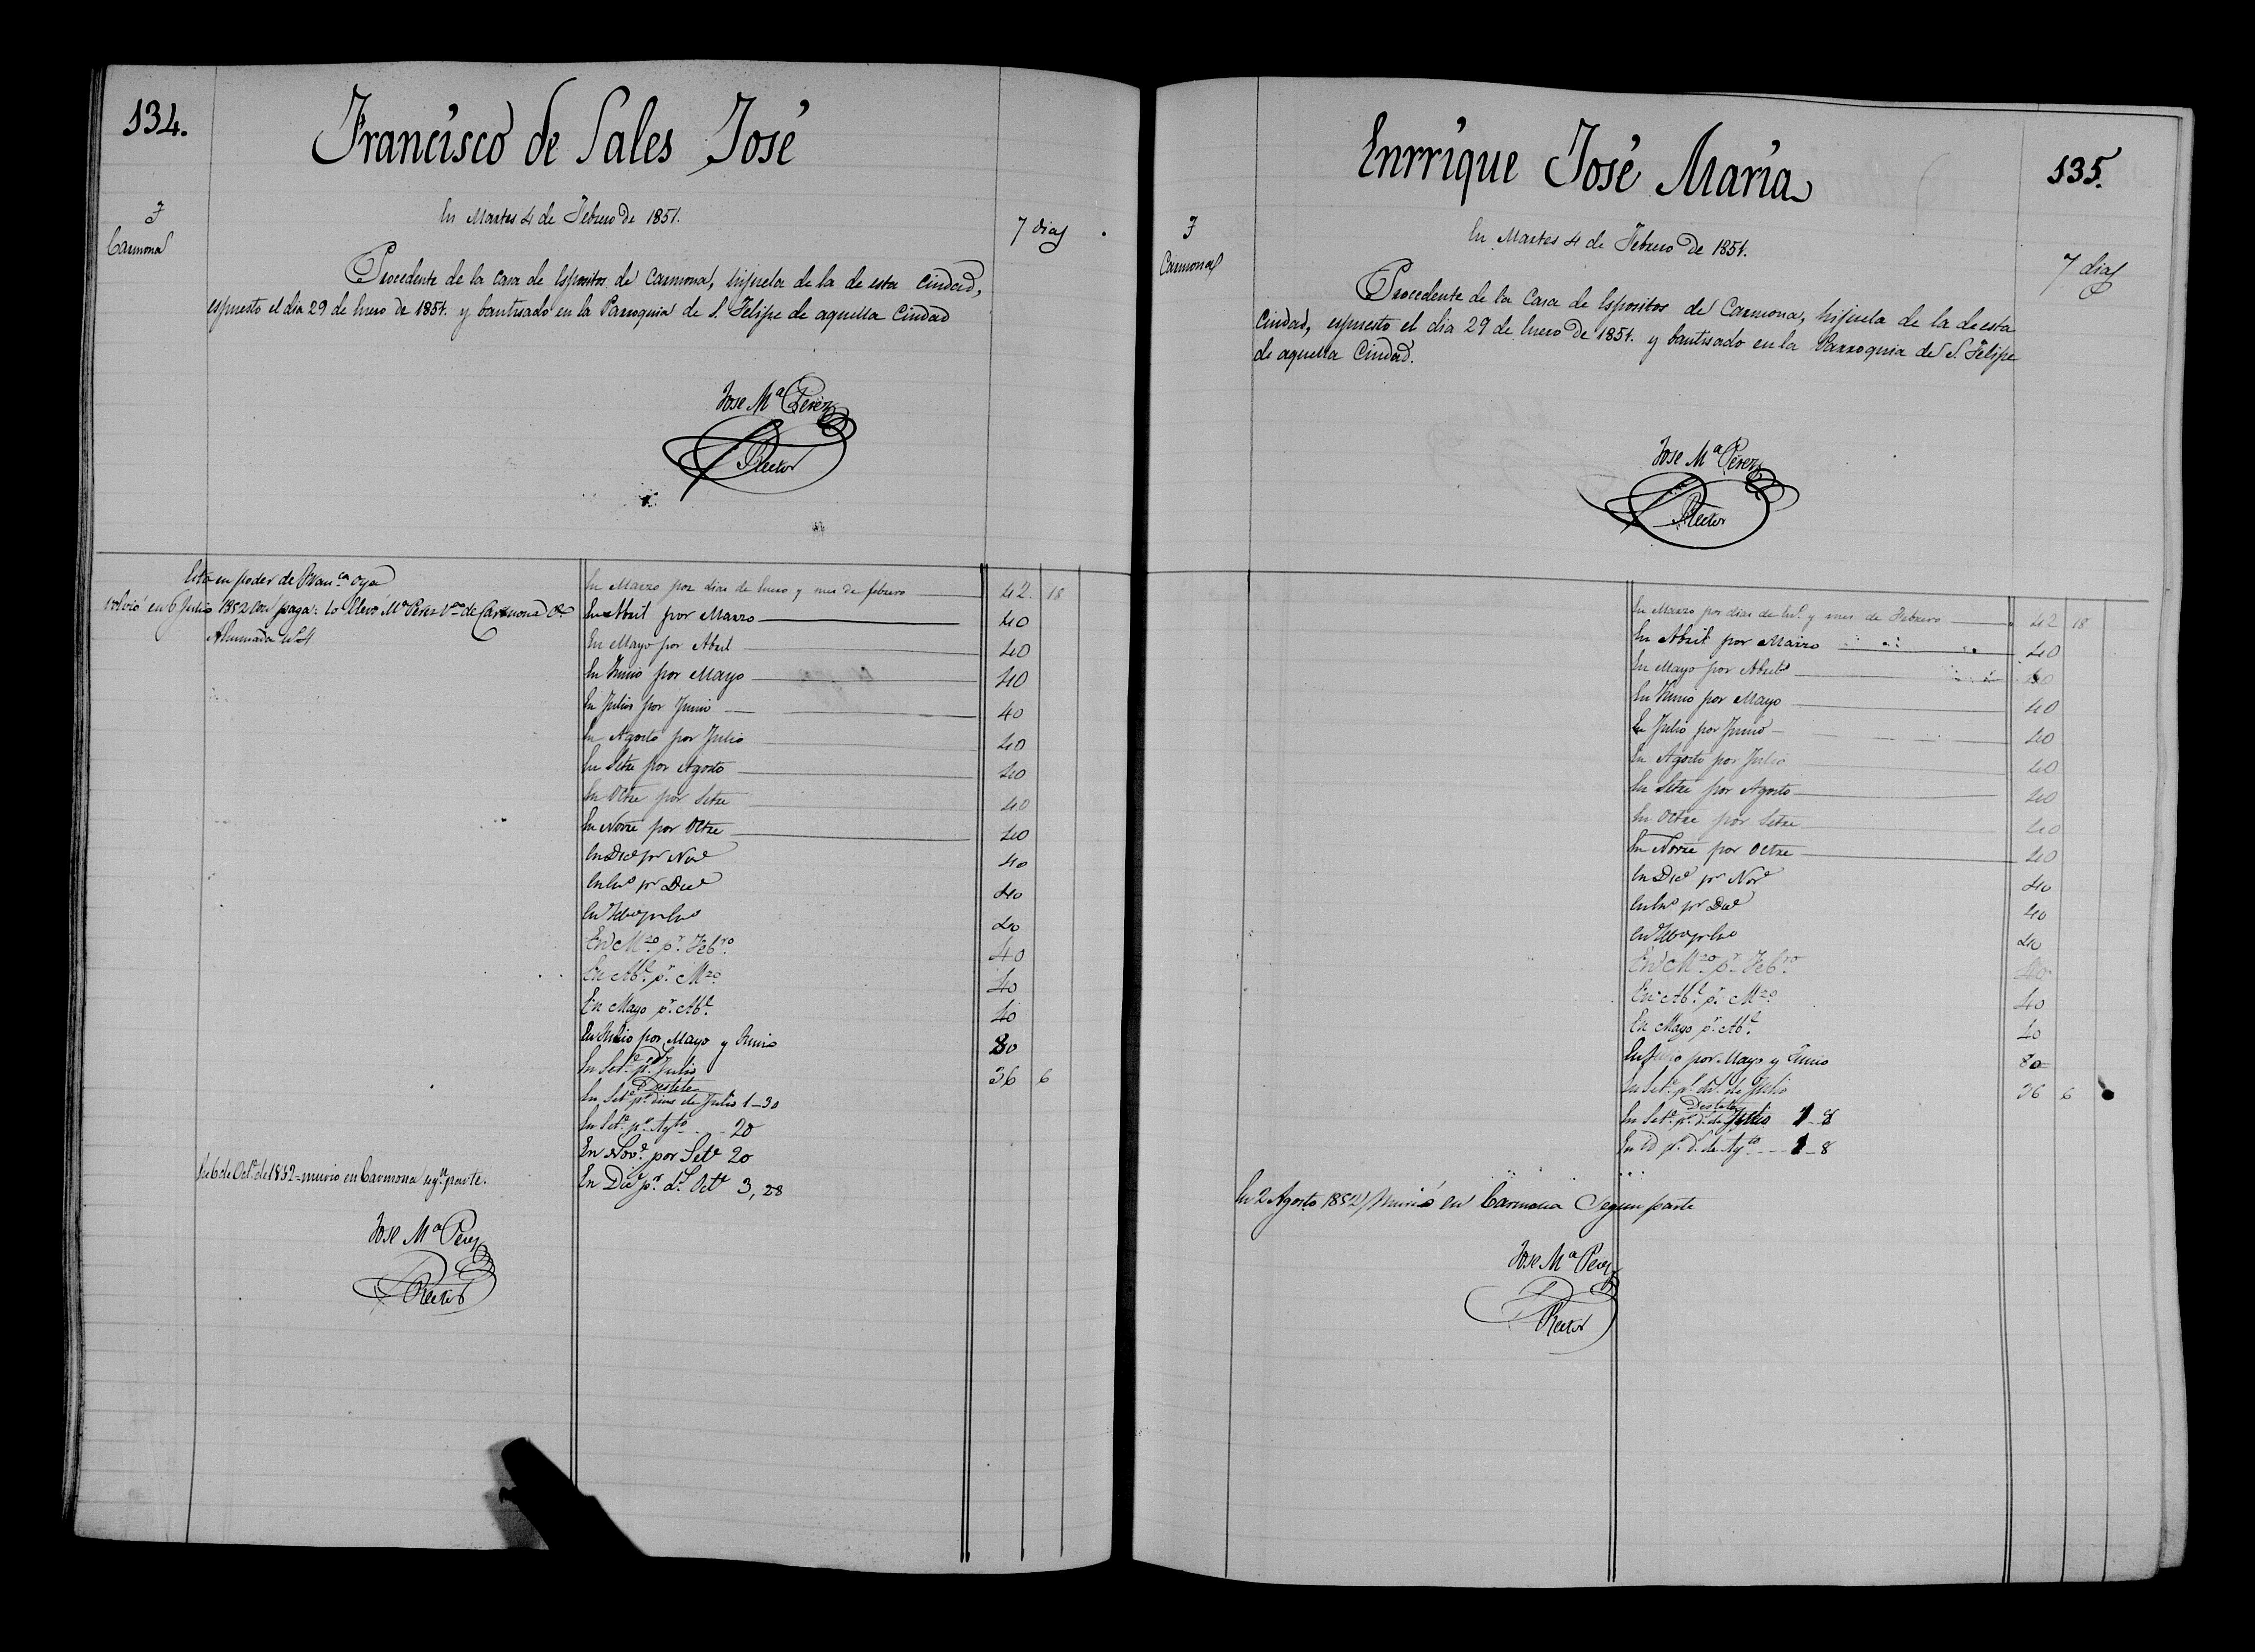 134.
Francisco de Sales José
F
Carmona
En Martes 4 de Febrero de 1851.
7 dias
Procedente de la Casa de Espositos de Carmona, hijuela de la de esta Ciudad,
espuesto el dia 29 de Enero de 1851. y bautisado en la Parroquia de S. Felipe de aquella Ciudad
Jose Mª Perez
Rector
Esta en poder de
volvió en 6 Julio 1852 con paga: Lo llevó Mª Perez Vna de Carmona Ce
Ahumada nº 4
En Marzo por dias de Enero y mes de febrero 42. 18
En Abril por Marzo 40
En Mayo por Abril 40
En Junio por Mayo 40
En Julio por Junio 40
En Agosto por Julio 40
En Setre por Agosto 40
En Octre por Setre 40
En Novre por Octre 40
En Dice pr Nove 40
En Eno pr Dice 40
En Febo pr Eno 40
En Mzo. pr. Febro. 40
En Abl. pr. Mzo. 40
En Mayo pr. Abl. 40
En Julio por Mayo y Junio 80
En Sete. pr. ds. Julio 36 6
Destete
En Sete. pr. dias de Julio 1-30
En Sete. pr. Agto. 20
En Nove. por Sete 20
En Dice pr. ds. Octe 3, 28
En 6 de Octe. de 1852 murio en Carmona segn. parte.
Jose Mª Perez
Rector
Enrrique José María
135.
F
Carmona
En Martes 4 de Febrero de 1851.
7 dias
Procedente de la Casa de Espositos de Carmona, hijuela de la de esta
Ciudad, espuesto el dia 29 de Enero de 1851. y bautisado en la Parroquia de S. Felipe
de aquella Ciudad.
Jose Mª Perez
Rector
En Marzo por dias de Eno. y mes de Febrero 42 18
En Abril por Marzo 40
En Mayo por Abril 40
En Junio por Mayo 40
En Julio por Junio 40
En Agosto por Julio 40
En Setre por Agosto 40
En Octre por Setre 40
En Novre por Octre 40
En Dice pr Nove 40
En Eno pr Dice 40
En Febo pr Eno 40
En Mzo. pr. Febro. 40
En Abl. pr. Mzo. 40
En Mayo pr. Abl. 40
En Julio por Mayo y Junio 80
En Sete. pr. ds. de Julio 36 6
Destete
En Sete. pr. ds. de Julio 1-8
En id pr. ds. de Agto 1-8
En 2 Agosto 1852 Murió en Carmona Segun parte
Jose Mª Perez
Rector